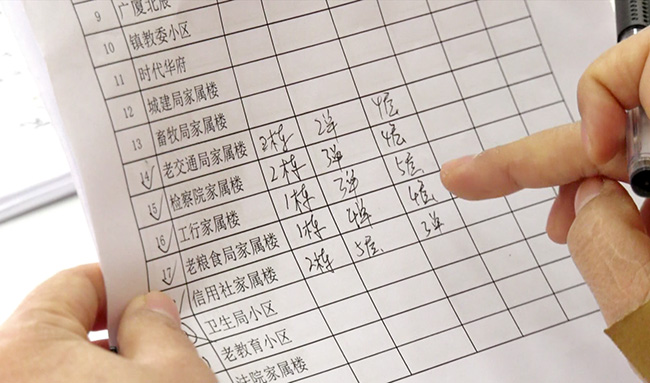 9 广厦北辰
10 镇教委小区
11 时代华府
12 城建局家属楼
13 畜牧局家属楼
14 老交通局家属楼 2栋 2单 4层
15 检察院家属楼 2栋 3单 4层
16 工行家属楼 1栋 3单 5层
17 老粮食局家属楼 1栋 4单 4层
信用社家属楼 2栋 5层 3单
卫生局小区
老教育小区
法院家属楼